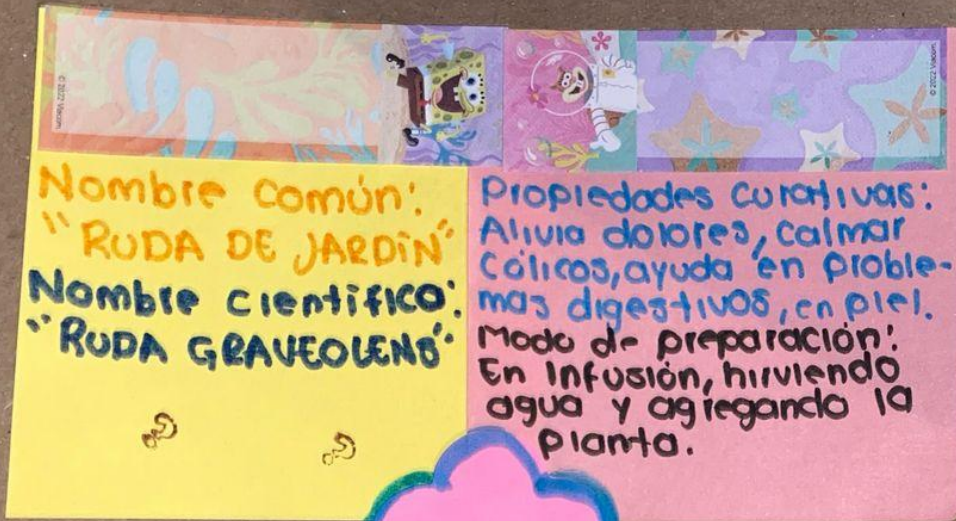 © 2022 Viacom
© 2022 Viacom
Nombre común:
"RUDA DE JARDÍN"
Nombre científico:
"RUDA GRAVEOLENS"
Propiedades curativas:
Alivia dolores, calmar
cólicos, ayuda en proble-
mas digestivos, en piel.
Modo de preparación:
En infusión, hirviendo
agua y agregando la
planta.